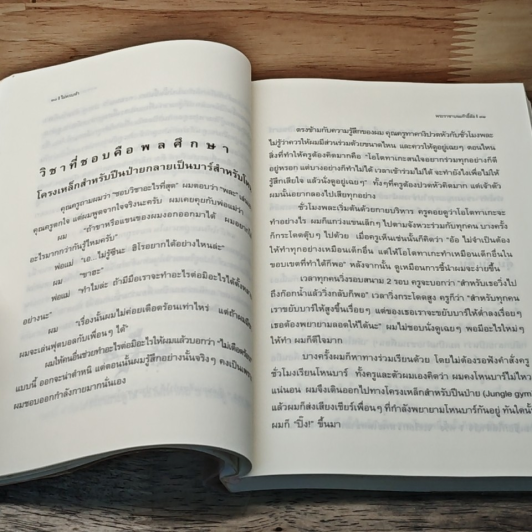 วิชาที่ชอบคือพลศึกษา
โครงเหล็กสำหรับปีนป่ายกลายเป็นบาร์สำหรับโหน
คุณครูถามผมว่า "ชอบวิชาอะไรที่สุด" ผมตอบว่า "พละ"
คุณครูตกใจ แต่ผมพูดจากใจจริงนะครับ ผมเคยคุยกับพ่อแม่ว่า
ผม "ถ้าขาหรือแขนของผมงอกออกมาได้
อะไรมากกว่ากันรู้ไหมครับ"
พ่อแม่ "เอ... ไม่รู้ซีนะ ฮิโรอยากได้อย่างไหนล่ะ"
ผม "ขาฮะ"
พ่อแม่ "ทำไมล่ะ ถ้ามีมือเราจะทำอะไรต่อมิอะไรได้ตั้ง
อย่างนะ"
ผม "เรื่องนั้นผมไม่ค่อยเดือดร้อนเท่าไหร่ แต่ถ้าผม
ผมจะเล่นฟุตบอลกับเพื่อนๆ ได้"
ผมให้คนอื่นช่วยทำอะไรต่อมิอะไรให้ผมแล้วบอกว่า "ไม่เดือดร้อน
แบบนี้ ออกจะน่าตำหนิ แต่ตอนนั้นผมรู้สึกอย่างนั้นจริงๆ คงเป็นเพราะ
ผมชอบออกกำลังกายมากนั่นเอง
ตรงข้ามกับความรู้สึกของผม คุณครูทาคางิปวดหัวกับชั่วโมงพละ
ไม่รู้ว่าควรให้ผมมีส่วนร่วมด้วยขนาดไหน และควรให้ดูอยู่เฉยๆ ตอนไหน
สิ่งที่ทำให้ครูต้องคิดมากคือ "โอโตทาเกะสนใจอยากร่วมทุกอย่างก็ดี
อยู่หรอก แต่บางอย่างก็ทำไม่ได้ เวลาเข้าร่วมไม่ได้ จะทำยังไงเพื่อไม่ให้
รู้สึกเสียใจ แล้วนั่งดูอยู่เฉยๆ" ทั้งๆ ที่ครูต้องปวดหัวคิดมาก แต่เจ้าตัว
ผมนั้นอยากลองไปเสียทุกอย่าง
ชั่วโมงพละเริ่มต้นด้วยกายบริหาร ครูคอยดูว่าโอโตทาเกะจะ
ทำอย่างไร ผมก็แกว่งแขนเล็กๆ ไปตามจังหวะร่วมกับทุกคน บางครั้ง
ก็กระโดดตุ้บๆ ไปด้วย เมื่อครูเห็นเช่นนั้นก็คิดว่า "อ้อ ไม่จำเป็นต้อง
ให้ทำทุกอย่างเหมือนเด็กอื่น แต่ให้โอโตทาเกะทำเหมือนเด็กอื่นใน
ขอบเขตที่ทำได้ก็พอ" หลังจากนั้น ดูเหมือนการชี้นำผมจะง่ายขึ้น
เวลาทุกคนวิ่งรอบสนาม 2 รอบ ครูจะบอกว่า "สำหรับเธอวิ่งไป
ถึงก๊อกน้ำแล้ววิ่งกลับก็พอ" เวลาวิ่งกระโดดสูง ครูก็ว่า "สำหรับทุกคน
เราขยับบาร์ให้สูงขึ้นเรื่อยๆ แต่ของเธอเราจะขยับบาร์ให้ต่ำลงเรื่อยๆ
เธอต้องพยายามลอดให้ได้นะ" ผมไม่ชอบนั่งดูเฉยๆ พอมีอะไรใหม่ๆ
ให้ทำ ผมก็ดีใจมาก
บางครั้งผมก็หาทางร่วมเรียนด้วย โดยไม่ต้องรอฟังคำสั่งครู
ชั่วโมงเรียนโหนบาร์ ทั้งครูและตัวผมเองคิดว่า ผมคงโหนบาร์ไม่ไหว
แน่นอน ผมจึงเดินออกไปทางโครงเหล็กสำหรับปีนป่าย (Jungle gym
แล้วผมก็ส่งเสียงเชียร์เพื่อนๆ ที่กำลังพยายามโหนบาร์กันอยู่ ทันใดนั้
ผมก็ "ปิ๊ง!" ขึ้นมา